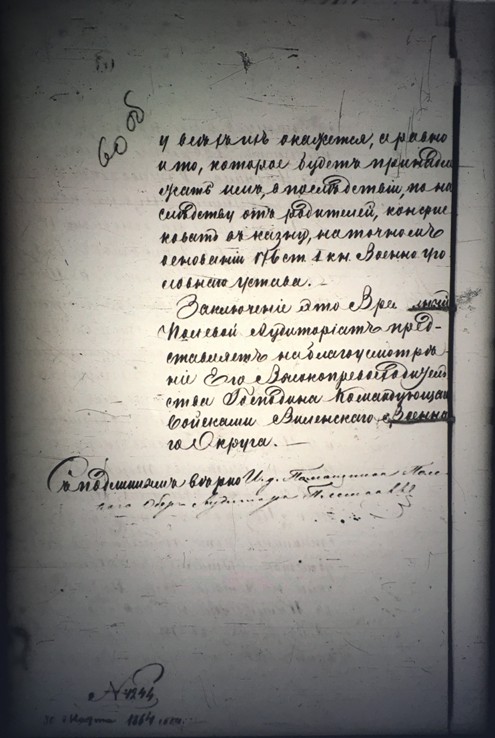 60 об
у всѣхъ ихъ окажется, а равно
и то, которое будетъ принадле
жать имъ, впослѣдствіи, по на
слѣдству отъ родителей, конфис
ковать въ казну, на точномъ
основаніи ст 1 кн. Военно уго
ловнаго устава.
Заключеніе это Вре
Полевой Аудиторіатъ пред-
ставляетъ на благоусмотрѣ
ніе Его Высокопревосходитель
ства Господина Командующаго
Войсками Виленскаго Военна
го Округа.
Съ подлиннымъ вѣрно И. д. Помощника
Аудитора
№ 4244
1864